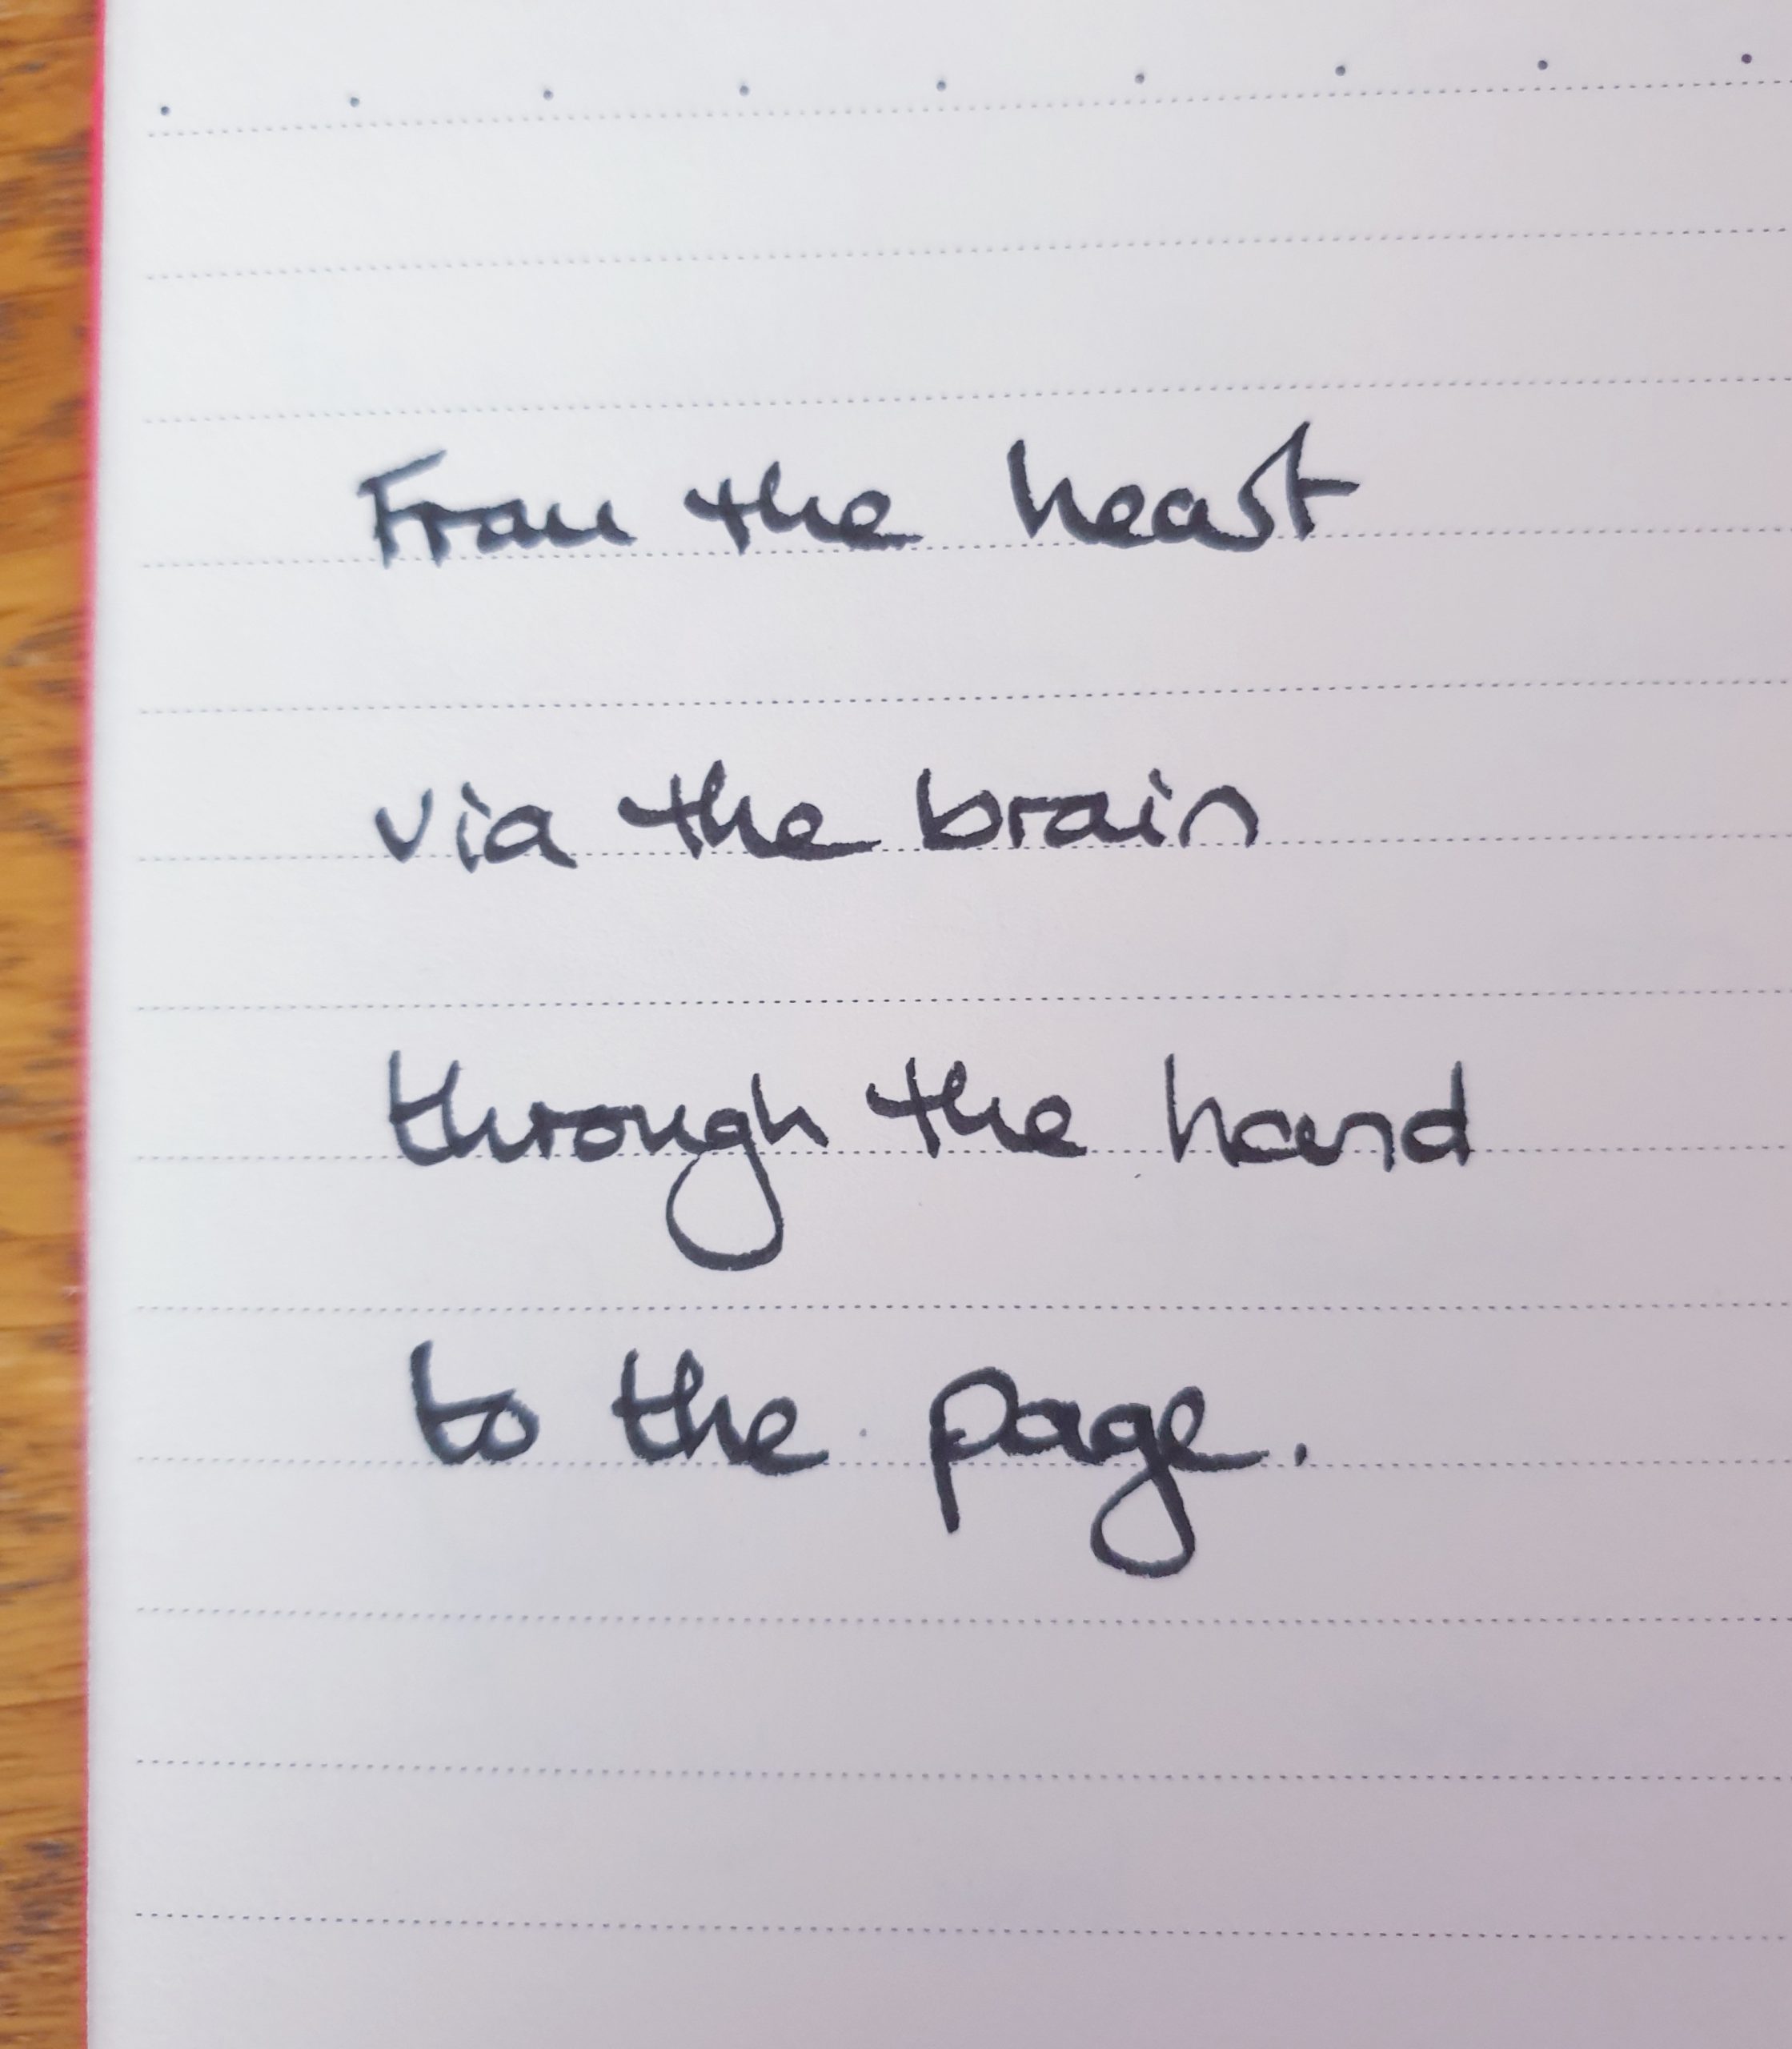 From the heart
via the brain
through the hand
to the page.